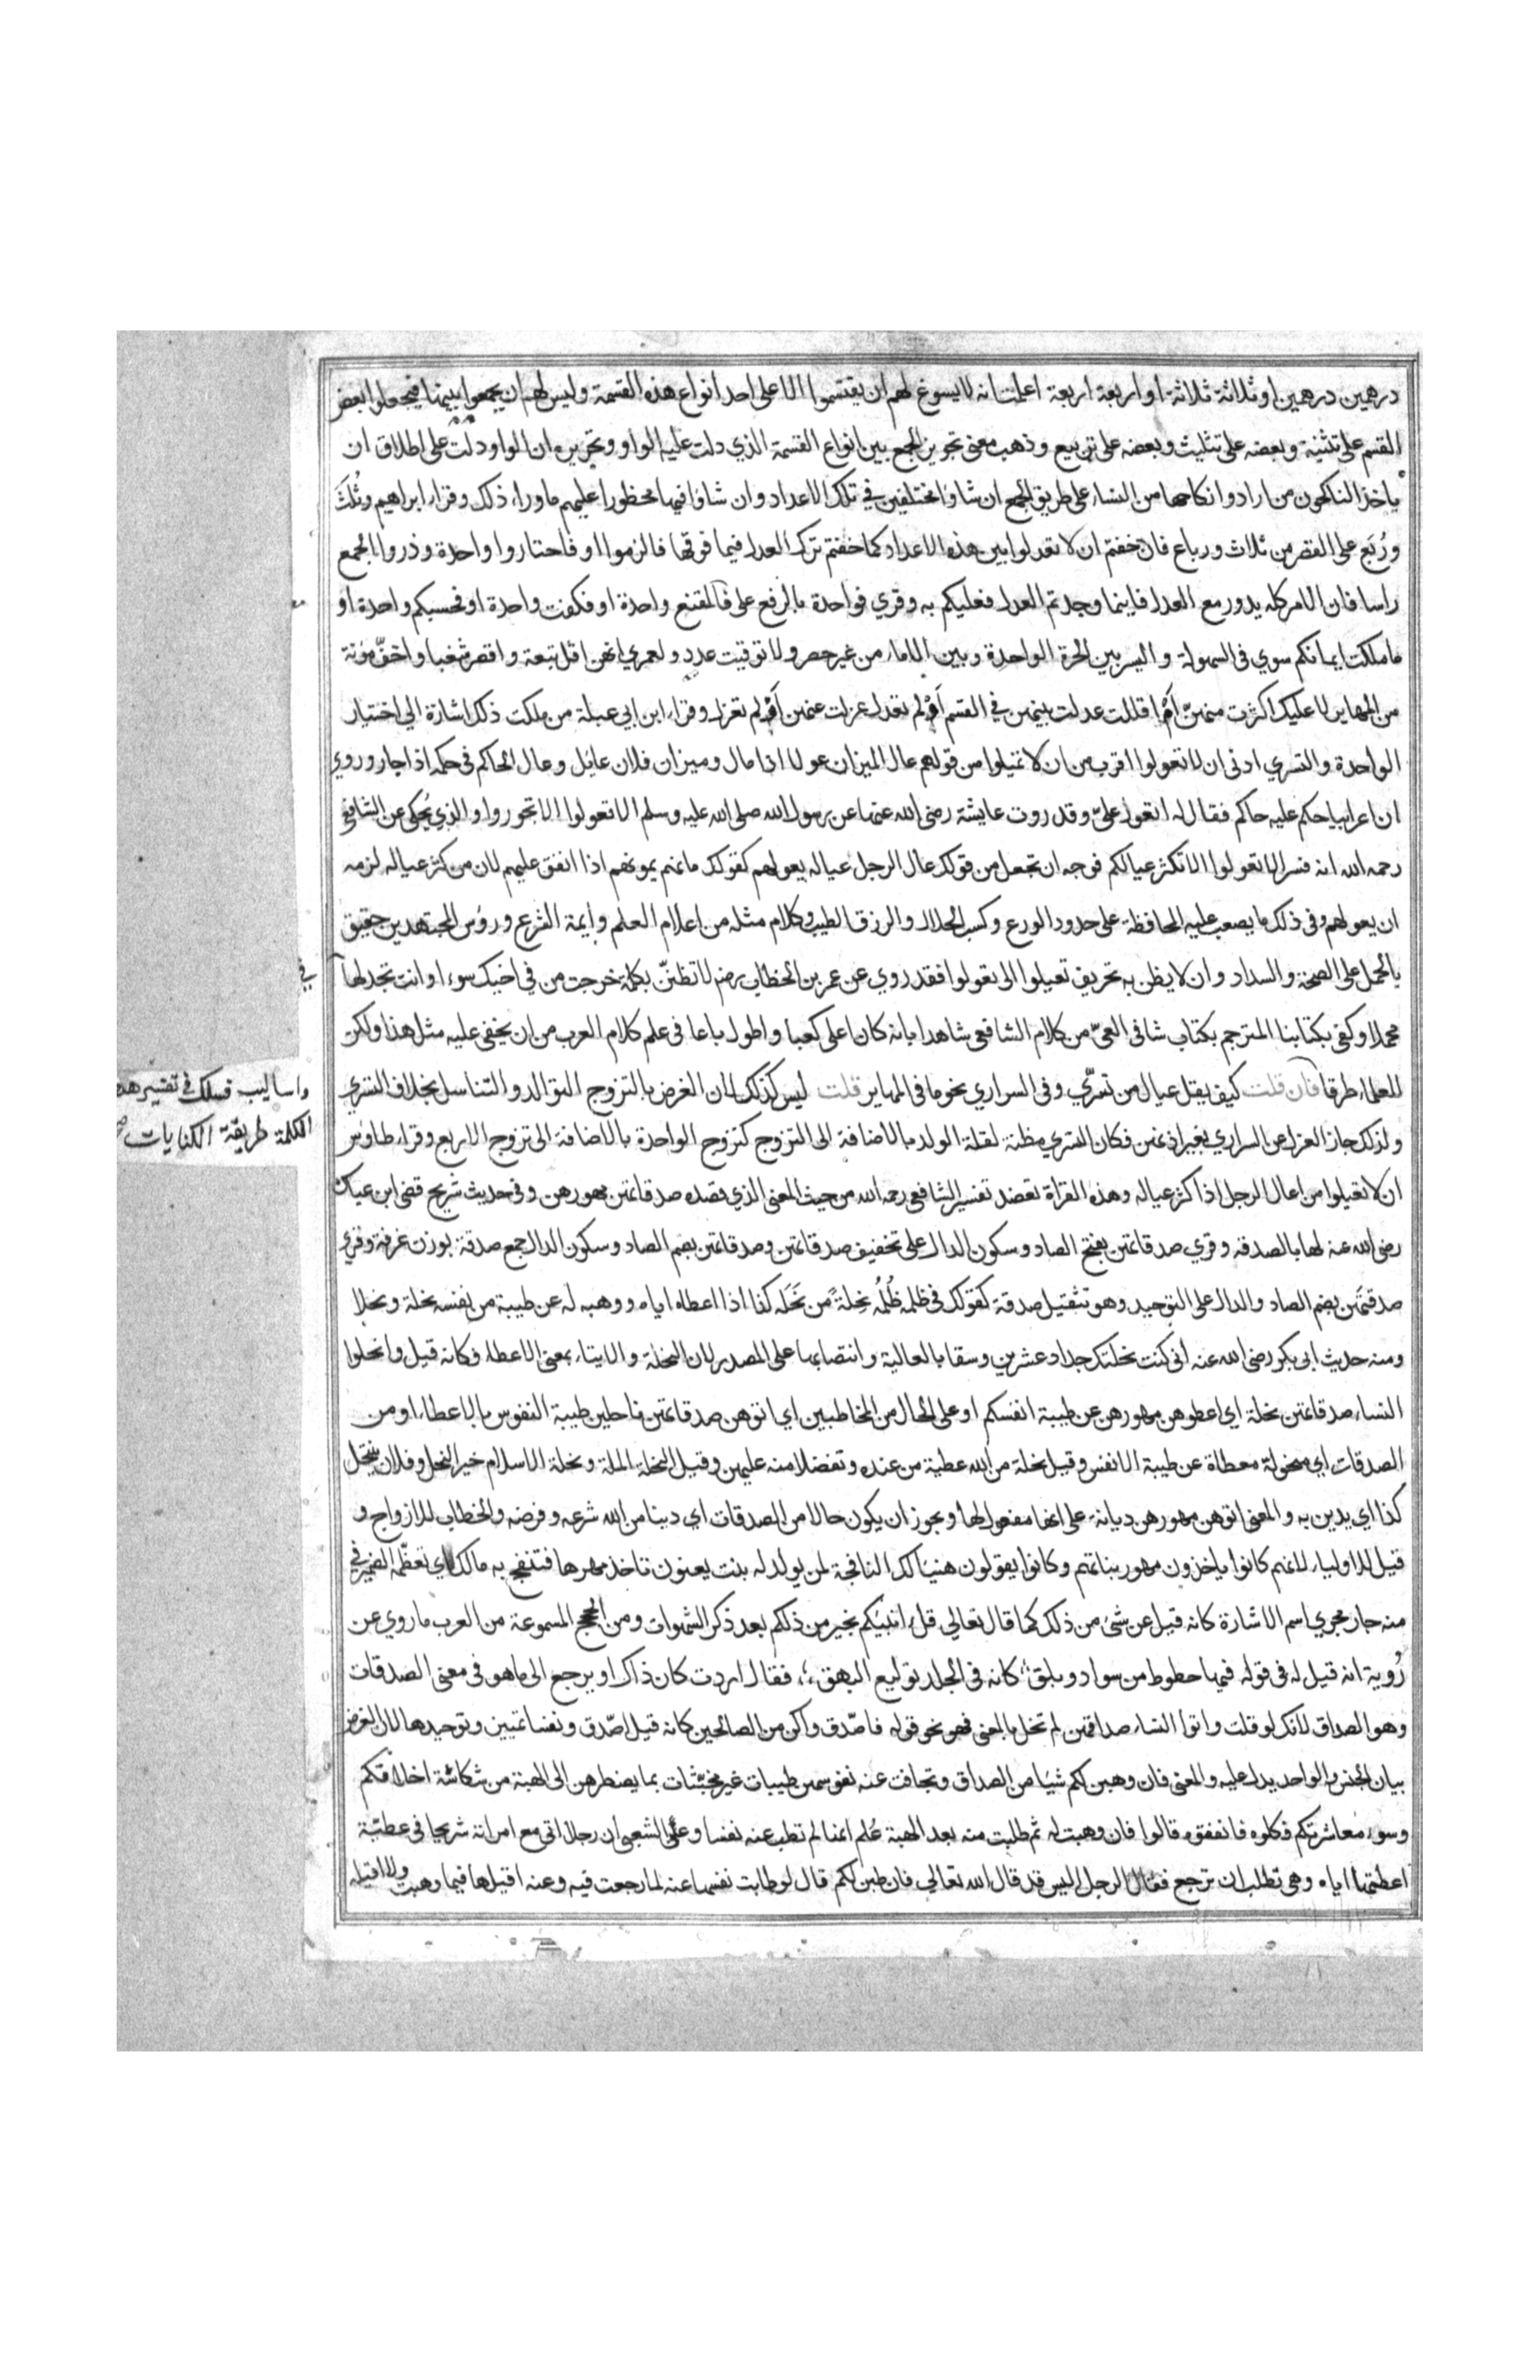 درهمين درهمين او ثلاثة ثلاثة او اربعة اربعة اعلمت انه لا يسوغ لهم ان يقتسموا الا على احد انواع هذه القسمة وليس لهم ان يجمعوا بينها فيجعلوا بعض
القسم على تثنية وبعضه على تثليث وبعضه على تربيع وذهب معنى تجويز الجمع بين انواع القسمة الذي دلت عليه الواو وتحريره ان الواو دلت على اطلاق ان
ياخذ الناكحون من ارادوا نكاحها من النساء على طريق الجمع ان شاوا مختلفين في تلك الاعداد وان شاوا فيها محظورا عليهم ماوراء ذلك وقراء ابراهيم وثُلَثَ
ورُبَع على القصر من ثلاث ورباع فان خفتم ان لا تعدلوا بين هذه الاعداد كما خفتم ترك العدل فيما فوقها فالزموا او فاختاروا واحدة وذروا الجمع
راسا فان الامر كله يدور مع العدل فاينما وجدتم العدل فعليكم به وقري فواحدة بالرفع على فالمقنع واحدة او فكفت واحدة او فحسبكم واحدة او
ما ملكت ايمانكم سوي في السهولة واليسر بين الحرة الواحدة وبين الاماء من غير حصر ولا توقيت عدد ولعمري انهن اقل تبعة واقصر شغبا واخفّ مؤنة
من المهاير لا عليك اكثرت منهن اَمْ اقللت عدلت بينهن في القسم اَمْ لم تعدل عزلت عنهن اَمْ لم تعزل وقراء ابن ابي عبلة من ملكت ذلك اشارة الي اختيار
الواحدة والتسري ادنى ان لا تعولوا اقرب من ان لا تميلوا من قولهم عال الميزان عولا اذا مال وميزان فلان عائل وعال الحاكم في حكمه اذا جار وروي
ان اعرابيا حكم عليه حاكم فقال له اتعول عليّ وقد روت عايشة رضى الله عنها عن رسول الله صلى الله عليه وسلم الا تعولوا الا تجوروا والذي يُحكى عن الشافعي
رحمه الله انه فسر الا تعولوا الا تكثر عيالكم فوجه ان تجعل من قولك عال الرجل عياله يعولهم كقولك مانهم يمونهم اذا انفق عليهم لان من كثر عياله لزمه
ان يعولهم وفي ذلك ما يصعب عليه المحافظة على حدود الورع وكسب الحلال والرزق الطيب وكلام مثله من اعلام العلم وايمة الشرع ورؤس المجتهدين حقيق
بالحمل على الصحة والسداد وان لا يظن به تحريف تعيلوا الى تعولوا فقد روي عن عمر بن الخطاب رضه لا تظنن بكلمة خرجت من في اخيك سوءا وانت تجد لها
في
محملا وكفى بكتابنا المترجم بكتاب شافى العيّ من كلام الشافعي شاهدا بانه كان اعلى كعبا واطول باعا في علم كلام العرب من ان يخفى عليه مثل هذا ولكن
للعلماء طرقا فان قلت كيف يقل عيال من تسرّي وفى السراري نحو ما في المهاير قلت ليس كذلك لان الغرض بالتزوج التوالد والتناسل بخلاف التسري
واساليب فسلك في تفسير هذه
الكلمة طريقة الكنايات صح
ولذلك جاز العزل عن السراري بغير اذنهن فكان التسري مظنة لقلة الولد بالاضافة الى التزوج كتزوج الواحدة بالاضافة الى تزوج الاربع وقراء طاوس
ان لا تعيلوا من اعال الرجل اذا كثر عياله وهذه القراة تعضد تفسير الشافعي رحمه الله من حيث المعنى الذي قصده صدقاتهن مهورهن وفى حديث شريح قضى ابن عباس
رضى الله عنه لها بالصدقه وقري صدقاتهن بفتح الصاد وسكون الدال على تخفيف صدقاتهن وصدقاتهن بضم الصاد وسكون الدال جمع صدقة بوزن غرفة وقري
صدقتهن بضم الصاد والدال على التوحيد وهو تثقيل صدقة كقولك في ظلمه ظُلُمه نِحلةً من نَحَلَه كذا اذا اعطاه اياه ووهبه له عن طيبة من نفسه نحلة ونحلا
ومنه حديث ابى بكر رضى الله عنه انى كنت نحلتك جداد عشرين وسقا بالعالية وانتصابها على المصدر لان النحلة والايتاء بمعنى الاعطاء فكانه قيل وانحلوا
النساء صدقاتهن نحلة اي اعطوهن مهورهن عن طيبة انفسكم او على الحال من المخاطبين اي اتوهن صدقاتهن ناحلين طيبة النفوس بالاعطاء او من
الصدقات اي منحولة معطاة عن طيبة الانفس وقيل نحلة من الله عطية من عنده وتفضلا منه عليهن وقيل النحلة الملة ونحلة الاسلام خير النحل وفلان ينتحل
كذا اي يدين به والمعنى اتوهن مهورهن ديانة على انها مفعول لها ويجوز ان يكون حالا من الصدقات اي دينا من الله شرعه وفرضه والخطاب للازواج و
قيل للاولياء لانهم كانوا ياخذون مهور بناتهم وكانوا يقولون هنيئا لك النافجة لمن يولد له بنت يعنون تاخذ مهرها فتنفج به مالك اي تعظمه الضمير في
منه جار مجري اسم الاشارة كانه قيل عن شئ من ذلك كما قال تعالي قل اؤنبئكم بخير من ذلكم بعد ذكر الشهوات ومن الحجج المسموعة من العرب ما روي عن
رُوبة انه قيل له فى قوله فيها خطوط من سواد وبلق كانه في الجلد توليع البهق فقال اردت كان ذاك او يرجع الى ما هو فى معنى الصدقات
وهو الصداق لانك لو قلت واتوا النساء صداقهن لم تخل بالمعنى فهو نحو قوله فاصّدق واكن من الصالحين كانه قيل اصّدق ونفسا تمييز وتوحيدها لان الغرض
بيان الجنس والواحد يدل عليه والمعنى فان وهبن لكم شيئا من الصداق وتجافت عنه نفوسهن طيبات غير مخبّثات بما يضطرهن الى الهبة من شكاسة اخلاقكم
وسوء معاشرتكم فكلوه فانفقوه قالوا فان وهبت له ثم طلبت منه بعد الهبة عُلم انها لم تطب عنه نفسا وعن الشعبى ان رجلا اتى مع امراته شريحا فى عطيّة
اعطتها اياه وهى تطلب ان ترجع فقال الرجل اليس قد قال الله تعالي فان طبن لكم قال لو طابت نفسها عنه لما رجعت فيه وعنه اقيلها فيما وهبت ولا اقيله